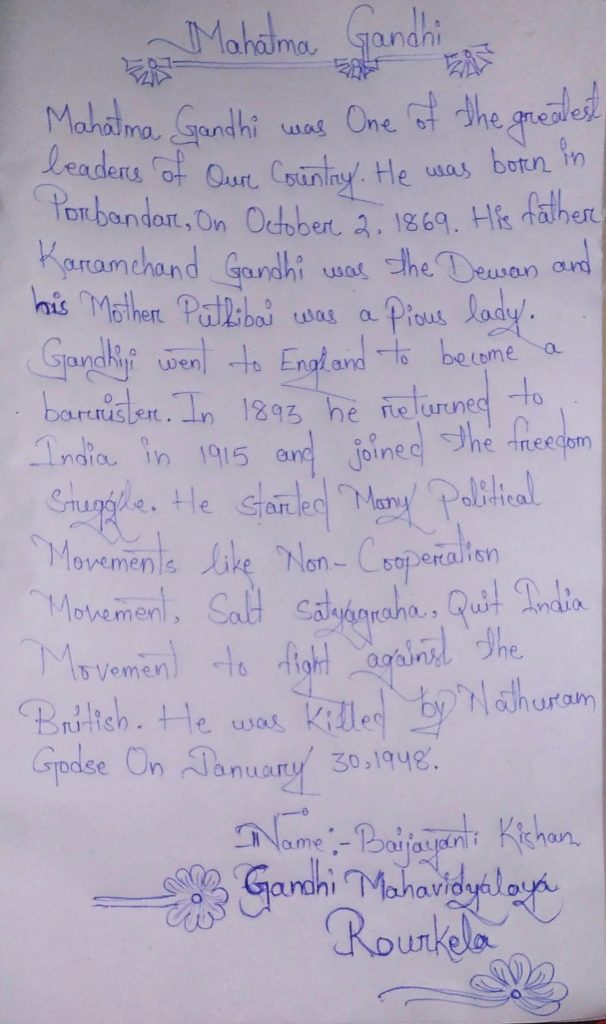 Mahatma Gandhi
Mahatma Gandhi was One of the greatest
leaders of Our Country. He was born in
Porbandar, On October 2, 1869. His father
Karamchand Gandhi was the Dewan and
his Mother Putlibai was a Pious lady.
Gandhiji went to England to become a
barrister. In 1893 he returned to
India in 1915 and joined the freedom
Stuggle. He started Many Political
Movements like Non-Cooperation
Movement, Salt Satyagraha, Quit India
Movement to fight against the
British. He was Killed by Nathuram
Godse On January 30, 1948.
Name:- Baijayanti Kishan
Gandhi Mahavidyalaya
Rourkela